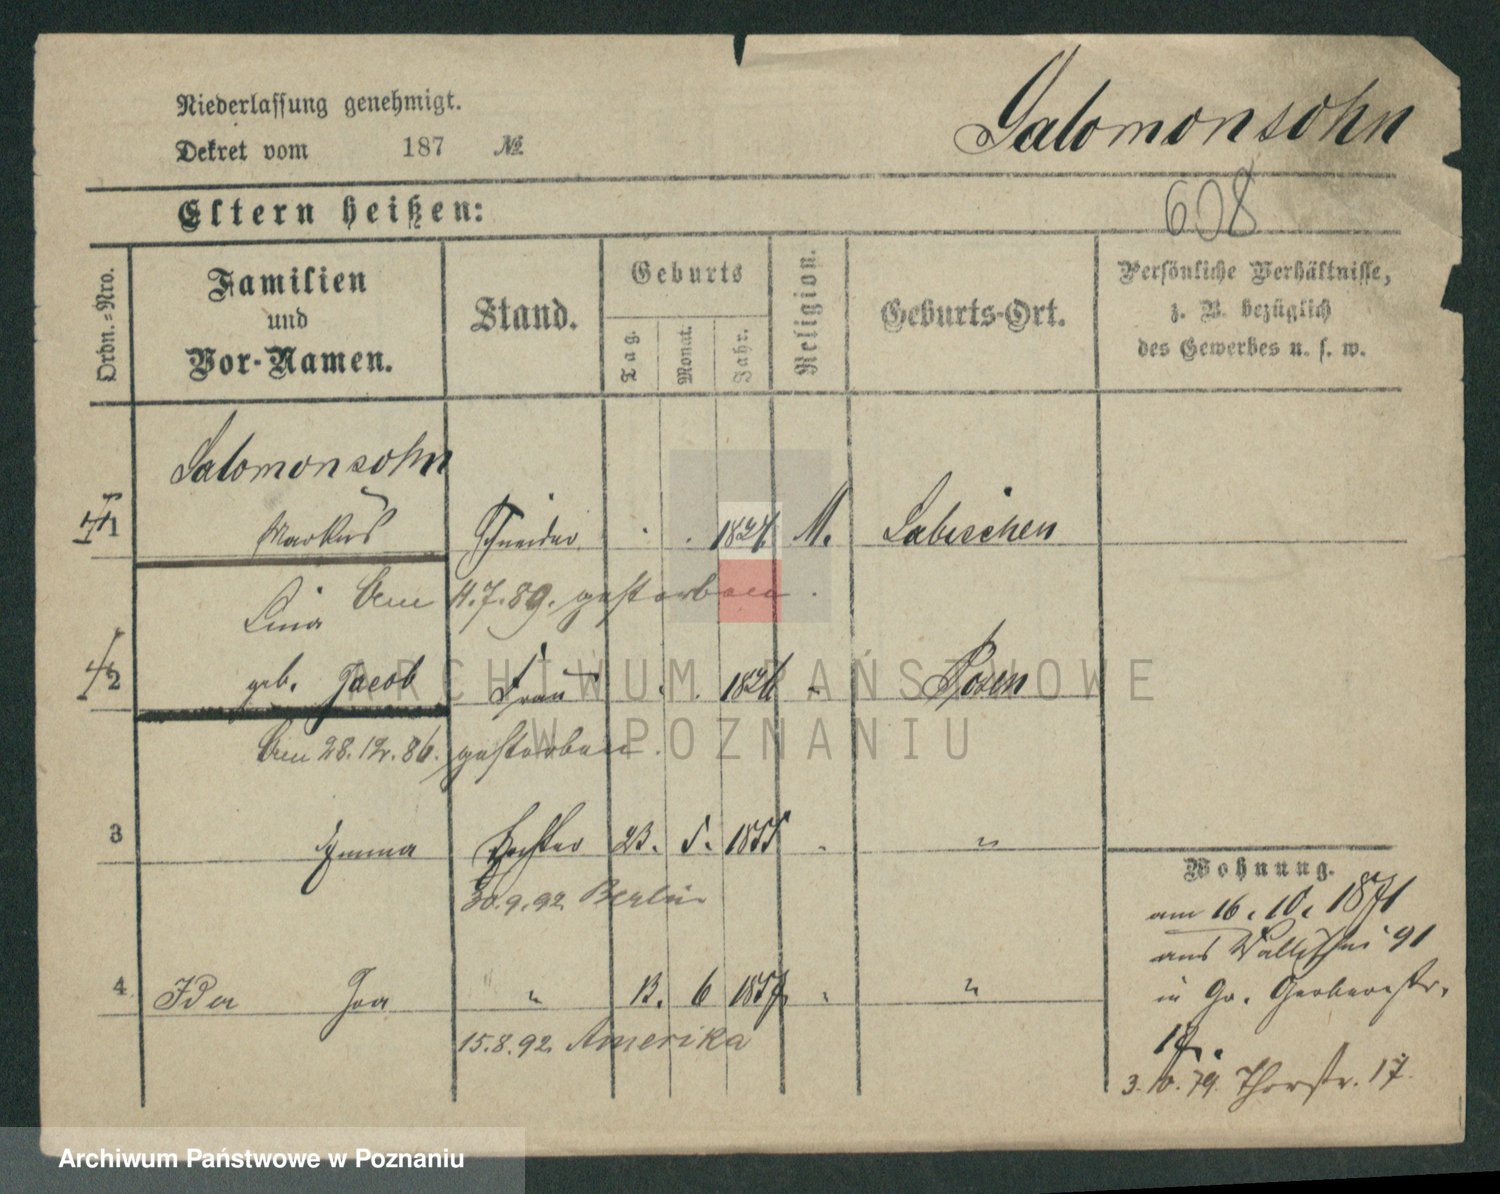 Niederlassung genehmigt.
Salomonsohn
Dekret vom 187 №
608
Eltern heißen:
Ordn.-Nro.
Familien
und
Vor-Namen.
Stand.
Geburts
Tag.
Monat.
Jahr.
Religion.
Geburts-Ort.
Persönliche Verhältnisse,
z. B. bezüglich
des Gewerbes u. s. w.
Salomonsohn
1 Markus Schneider 1827 M. Labischen
Den 11.7.89. gestorben.
Lina
2 geb. Jacob Frau 1826 " Posen
Den 28.12.86. gestorben.
3 Emma Tochter 23. 5. 1855 " "
30.9.92 Berlin
4 Ida " 13. 6 1857 " "
15.8.92 Amerika
Wohnung.
am 16. 10. 1871
aus Wallischei 91
in Gr. Gerberstr.
17.
3.10.79. Thorstr. 17.
ARCHIWUM PAŃSTWOWE
W POZNANIU
Archiwum Państwowe w Poznaniu